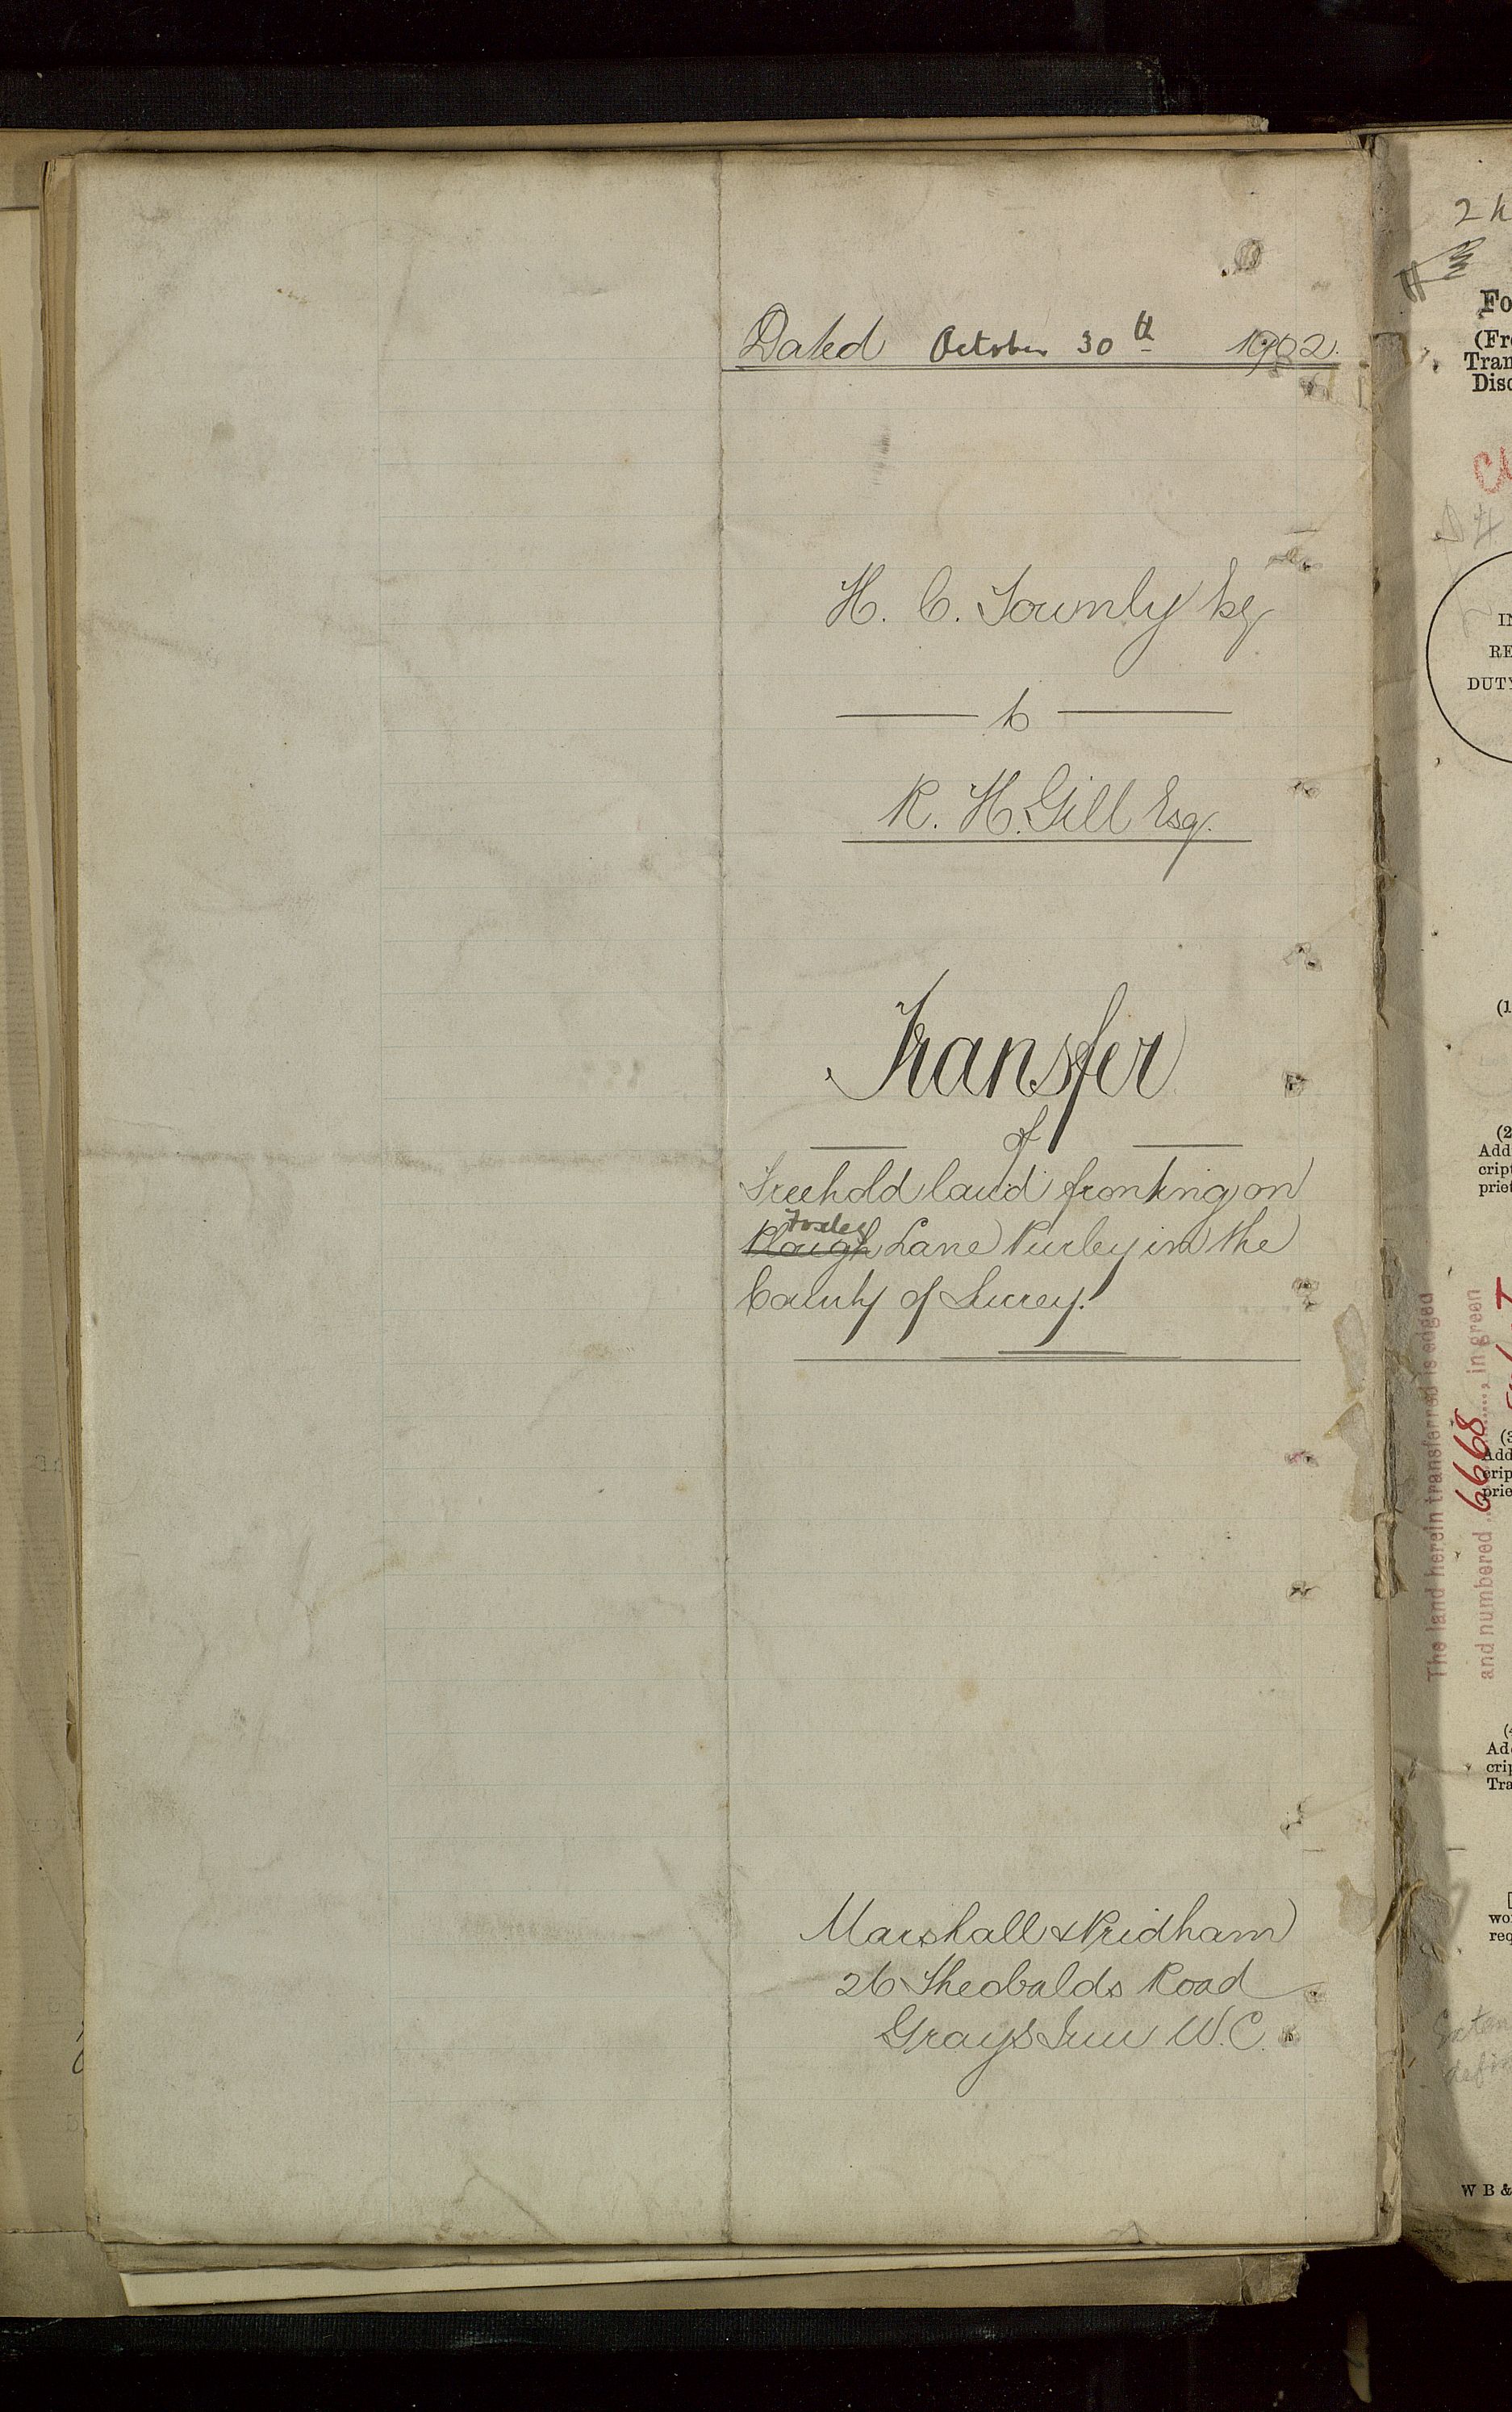 Dated October 30th 1902.
H. C. Townly Esq
to
R. H. Gill Esq.
Transfer
of
Freehold land fronting on
Foxley
Plough Lane Purley in the
County of Surrey.
Marshall & Pridham
26 Theobalds Road
Grays Inn W.C.
2
Fo
(Fr
Tran
Disc
IN
RE
DUTY
(1
(2
Add
crip
prie
The land herein transferred is edged
and numbered 6668, in green
(3
Add
crip
prie
(4
Add
crip
Tra
wo
req
W B &